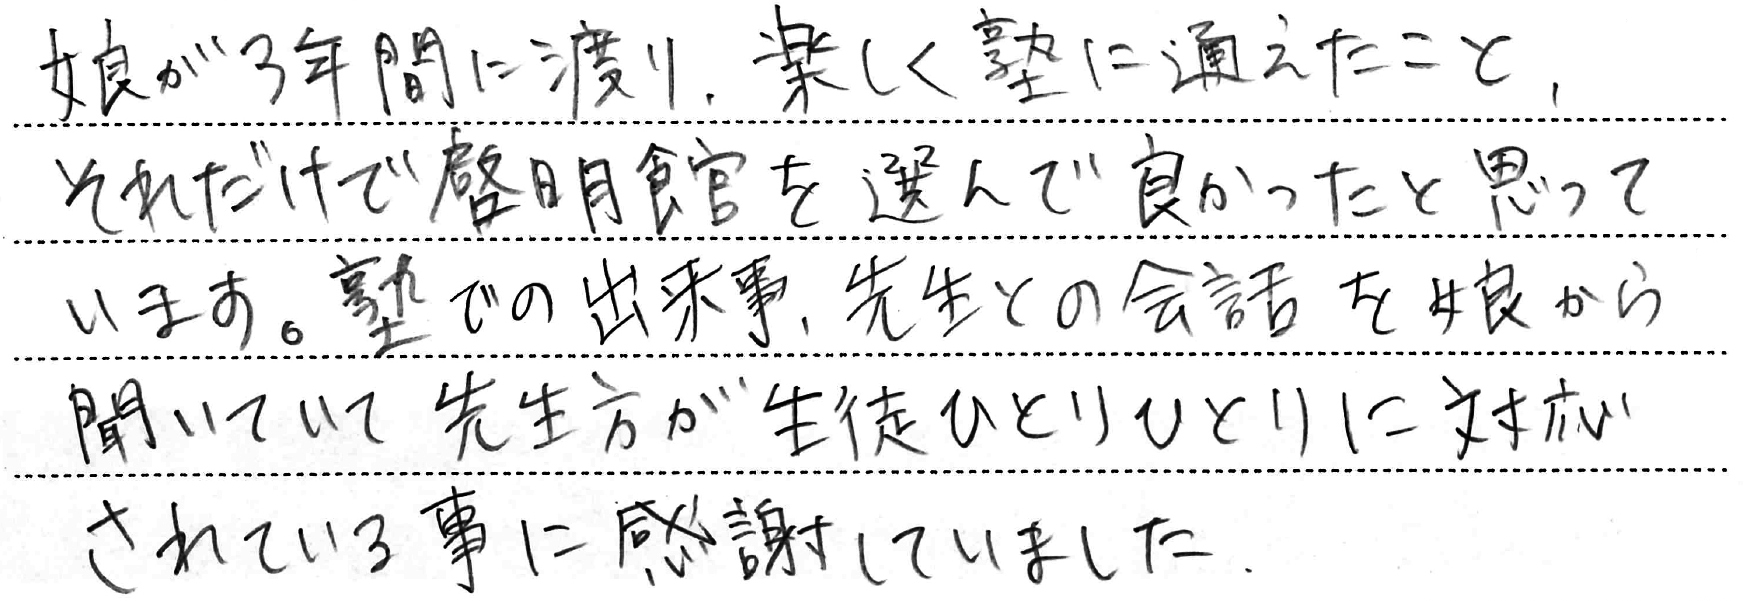 娘が3年間に渡り、楽しく塾に通えたこと、
それだけで啓明館を選んで良かったと思って
います。塾での出来事、先生との会話を娘から
聞いていて先生方が生徒ひとりひとりに対応
されている事に感謝していました.